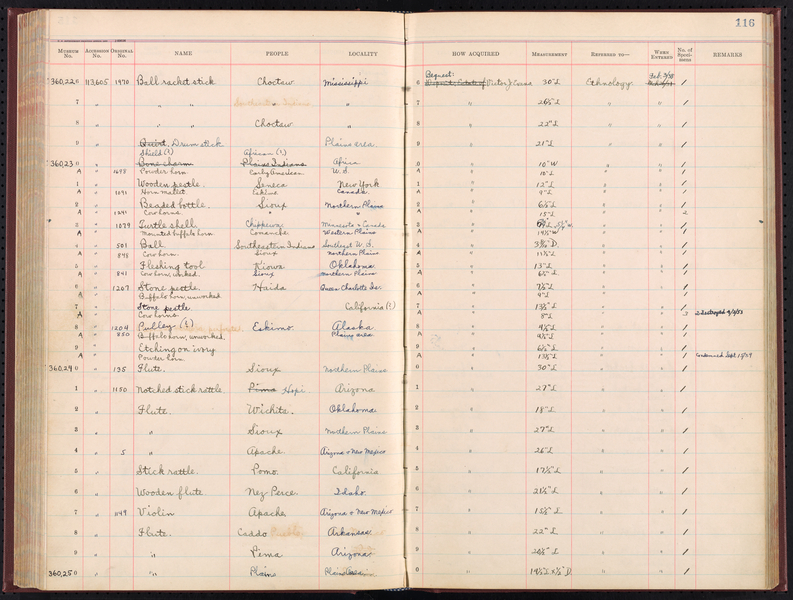 116
MUSEUM No. ACCESSION No. ORIGINAL No. NAME PEOPLE LOCALITY HOW ACQUIRED MEASUREMENT REFERRED TO— WHEN ENTERED No. of Specimens REMARKS
360,220 113,605 1470 Ball racket stick Choctaw Mississippi 0 Bequest: Victor J. Evans 30" L. Ethnology. 1
7 " " " " 7 " " " 1
8 " " " Choctaw " 8 " 22" L. " " 1
9 " Drum stick Plains area. 9 " 21" L. " " 1
Shield (?) African (?)
360,230 " Bone charm Plains Indians Africa 0 " 10" W " " 1
A " Powder horn Early American U.S. A " " " 1
1 " Wooden pestle. Seneca New York 1 " 12" L. " " 1
A " 1091 Horn mallet Eskimo Canada A " 9" L. " " 1
2 " Beaded bottle. Sioux Northern Plains 2 " " " 1
A " 1241 Cow horns. " " A " 15" L. " " 2
3 " 1079 Turtle shell Chippewa Minnesota & Canada 3 " " " 1
A " Mounted buffalo horn Comanche Western Plains A " " " 1
4 " 501 Ball. Southeastern Indians Southeast U.S. 4 " " " 1
A " 848 Cow horn. Sioux Northern Plains A " " " 1
5 " Fleshing tool Kiowa Oklahoma 5 " 13" L. " " 1
A " 841 Cow horn, worked. Sioux Northern Plains A " " " 1
6 " 1207 Stone pestle. Haida Queen Charlotte Isr. 6 " " " 1
A " Buffalo horn, unworked A " 9" L. " " 1
7 " Stone pestle California (?) 7 " 13½" L. " " 1
A " Cow horns. A " 8" L. " " 2 Destroyed
8 " 1204 Pulley (?) Eskimo. Alaska 8 " " " 1
A " 850 Buffalo horn, unworked. Plains area A " " " 1
9 " Etching on ivory 9 " 6½" L. " " 1
A " Powder horn. A " " " 1 Condemned Sept
360,240 " 195 Flute. Sioux Northern Plains 0 " 30" L. " " 1
1 " 1150 Notched stick rattle. Pima Hopi Arizona 1 " 27" L. " " 1
2 " Flute. Wichita. Oklahoma 2 " 18" L. " " 1
3 " " Sioux Northern Plains 3 " 27" L. " " 1
4 " 5 " Apache Arizona & New Mexico 4 " 26" L. " " 1
5 " Stick rattle. Pomo. California 5 " 17½" L. " " 1
6 " Wooden flute Nez Perce. Idaho. 6 " 21½" L. " " 1
7 " Violin Apache Arizona & New Mexico 7 " " " 1
8 " Flute. Caddo Arkansas 8 " 22" L. " " 1
9 " " Pima Arizona 9 " " " 1
360,250 " " Plains 0 " " " 1